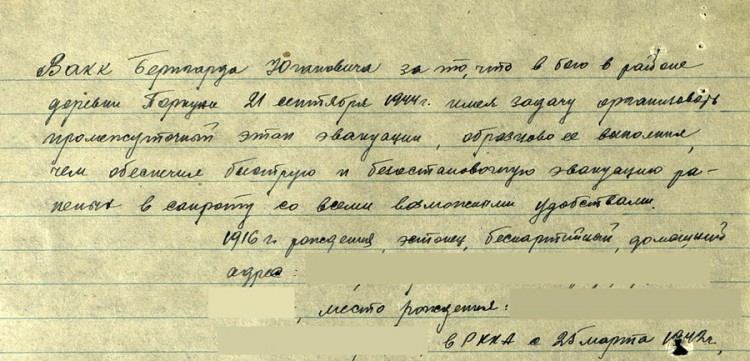 Вакк Бернгарда Югановича за то, что в бою в районе
деревни Поркуни 21 сентября 1944 г. имея задачу организовать
промежуточный этап эвакуации, образцово ее выполнил,
чем обеспечил быструю и безостановочную эвакуацию ра-
неных в санроту со всеми возможными удобствами.
1916 г. рождения, эстонец, беспартийный, домашний
адрес:
, место рождения:
в РККА с 25 марта 1942 г.